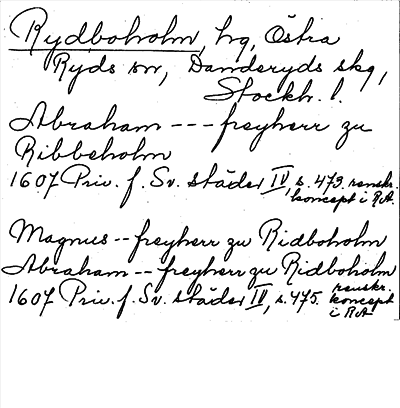 Rydboholm, hg, Östra
Ryds sn, Danderyds skg,
Stockh. l.
Abraham --- freyherr zu
Ribbeholm
1607 Priv. f. Sv. städer IV, s. 473. renskr.
koncept i R.A.
Magnus -- freyherr zu Ridboholm
Abraham -- freyherr zu Ridboholm
1607 Priv. f. Sv. städer IV, s. 475. renskr.
koncept
i RA